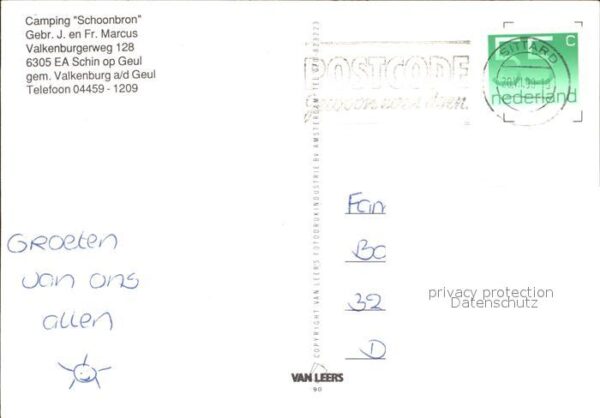 Camping "Schoonbron"
Gebr. J. en Fr. Marcus
Valkenburgerweg 128
6305 EA Schin op Geul
gem. Valkenburg a/d Geul
Telefoon 04459 - 1209
POSTCODE
gewoon even doen.
SITTARD
55 C
nederland
Groeten
van ons
allen
Fan
Bo
32
D
privacy protection
Datenschutz
COPYRIGHT VAN LEERS FOTODRUKINDUSTRIE BV AMSTERDAM
VAN LEERS
90